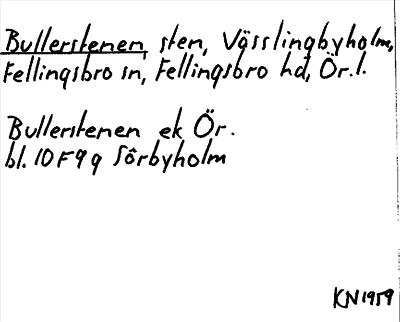 Bullerstenen, sten, Vässlingbyholm,
Fellingsbro sn, Fellingsbro hd, Ör.l.
Bullerstenen ek Ör.
bl. 10F9g Sörbyholm
KN1959